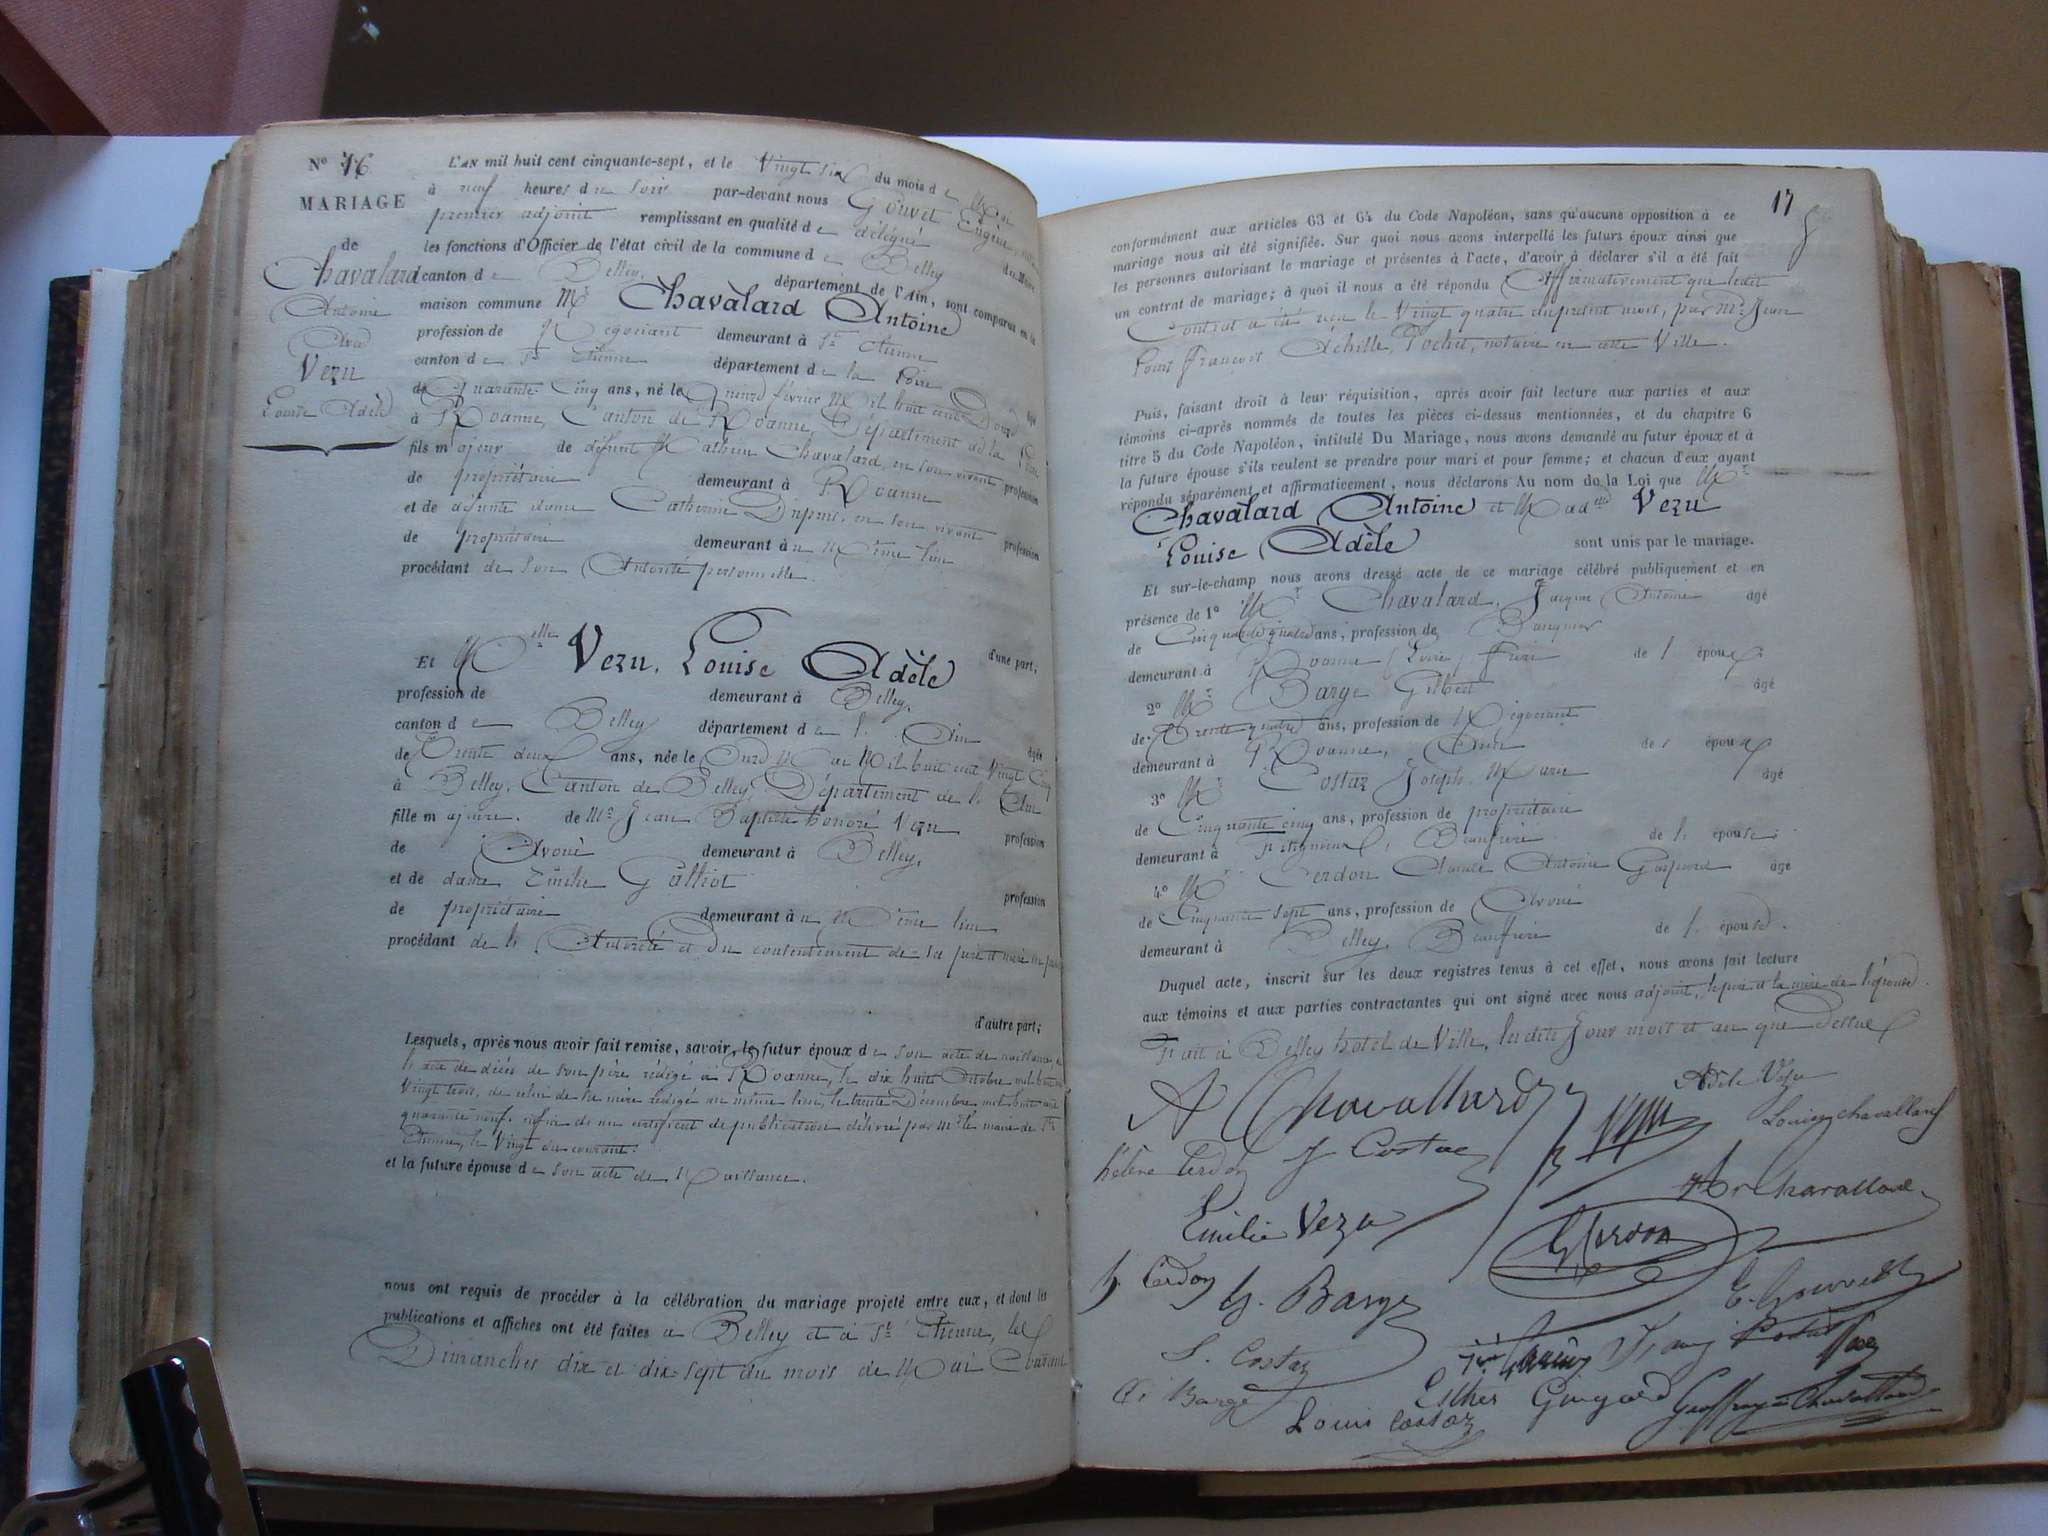 N° 16
MARIAGE
de
Chavalard
Antoine
Avec
Vezu
Louise Adèle
L'AN mil huit cent cinquante-sept, et le Vingt six du mois de Mai
à neuf heures du soir par-devant nous Gouvet Eugène,
premier adjoint remplissant en qualité de délégué du Maire
les fonctions d'Officier de l'état civil de la commune de Belley
canton de Belley, département de l'Ain, sont comparus en la
maison commune Mr Chavalard Antoine
profession de Négociant demeurant à St Etienne
canton de St Etienne département de la Loire âgé
de Quarante Cinq ans, né le Quinze février Mil huit cent Douze
à Roanne, Canton de Roanne, Département de la Loire
fils majeur de défunt Mathieu Chavalard, en son vivant profession
de propriétaire demeurant à Roanne
et de défunte dame Catherine Dupuis, en son vivant profession
de propriétaire demeurant au Même lieu
procédant de son Autorité personnelle.
d'une part;
Et Melle Vezu, Louise Adèle
profession de demeurant à Belley,
canton de Belley département de l'Ain âgée
de Trente deux ans, née le Onze Mai Mil huit cent Vingt Cinq
à Belley, Canton de Belley, Département de l'Ain
fille majeure. de Mr Jean Baptiste honoré Vezu profession
de Avoué demeurant à Belley,
et de dame Emilie Galliot profession
de propriétaire demeurant au Même lieu
procédant de l'Autorité et du consentement de ses père et mère
d'autre part;
Lesquels, après nous avoir fait remise, savoir, le futur époux de son acte de naissance,
de l'acte de décès de son père rédigé à Roanne, le dix huit Octobre mil huit cent
Vingt trois, de celui de sa mère rédigé au même lieu, le trente Décembre mil huit cent
quarante neuf, enfin de un certificat de publication délivré par Mr le maire de St
Etienne, le Vingt du courant.
et la future épouse de son acte de Naissance.
nous ont requis de procéder à la célébration du mariage projeté entre eux, et dont les
publications et affiches ont été faites à Belley et à St Etienne, les
Dimanches dix et dix-sept du mois de Mai Courant
17
conformément aux articles 63 et 64 du Code Napoléon, sans qu'aucune opposition à ce
mariage nous ait été signifiée. Sur quoi nous avons interpellé les futurs époux ainsi que
les personnes autorisant le mariage et présentes à l'acte, d'avoir à déclarer s'il a été fait
un contrat de mariage; à quoi il nous a été répondu Affirmativement que ledit
Contrat a été reçu le Vingt quatre du présent mois, par Mr Jean
Louis François Achille Pochet, notaire en cette Ville.
Puis, faisant droit à leur réquisition, après avoir fait lecture aux parties et aux
témoins ci-après nommés de toutes les pièces ci-dessus mentionnées, et du chapitre 6
titre 5 du Code Napoléon, intitulé Du Mariage, nous avons demandé au futur époux et à
la future épouse s'ils veulent se prendre pour mari et pour femme; et chacun d'eux ayant
répondu séparément et affirmativement, nous déclarons Au nom de la Loi que Mr
Chavalard Antoine et Madelle Vezu
Louise Adèle sont unis par le mariage.
Et sur-le-champ nous avons dressé acte de ce mariage célébré publiquement et en
présence de 1° Mr Chavalard, Jacques Antoine âgé
de Cinquante quatre ans, profession de Banquier
demeurant à Roanne (Loire) frère de l'époux.
2° Mr Barge Gilbert âgé
de Trente quatre ans, profession de Négociant
demeurant à Roanne, de l'époux
3° Mr Costaz Joseph Marie âgé
de Cinquante cinq ans, profession de propriétaire
demeurant à Beaufrère de l'épouse.
4° Mr Cerdon Claude Antoine Gaspard âgé
de Cinquante sept ans, profession de Avoué
demeurant à Belley, Beaufrère de l'épouse.
Duquel acte, inscrit sur les deux registres tenus à cet effet, nous avons fait lecture
aux témoins et aux parties contractantes qui ont signé avec nous adjoint, le père et la mère de l'épouse.
Fait à Belley hotel de Ville, lesdits Jour mois et an que Dessus
A Chavallard Adèle Vezu
Vezu Louise Chavallard
hélène Cerdon J Costaz
Emilie Vezu Ar Chavallard
Cerdon
h. Cerdon G. Barge E. Gouvet
S. Costaz
Barge Esther Guigard Geoffray-Chavallard
Louis Costaz